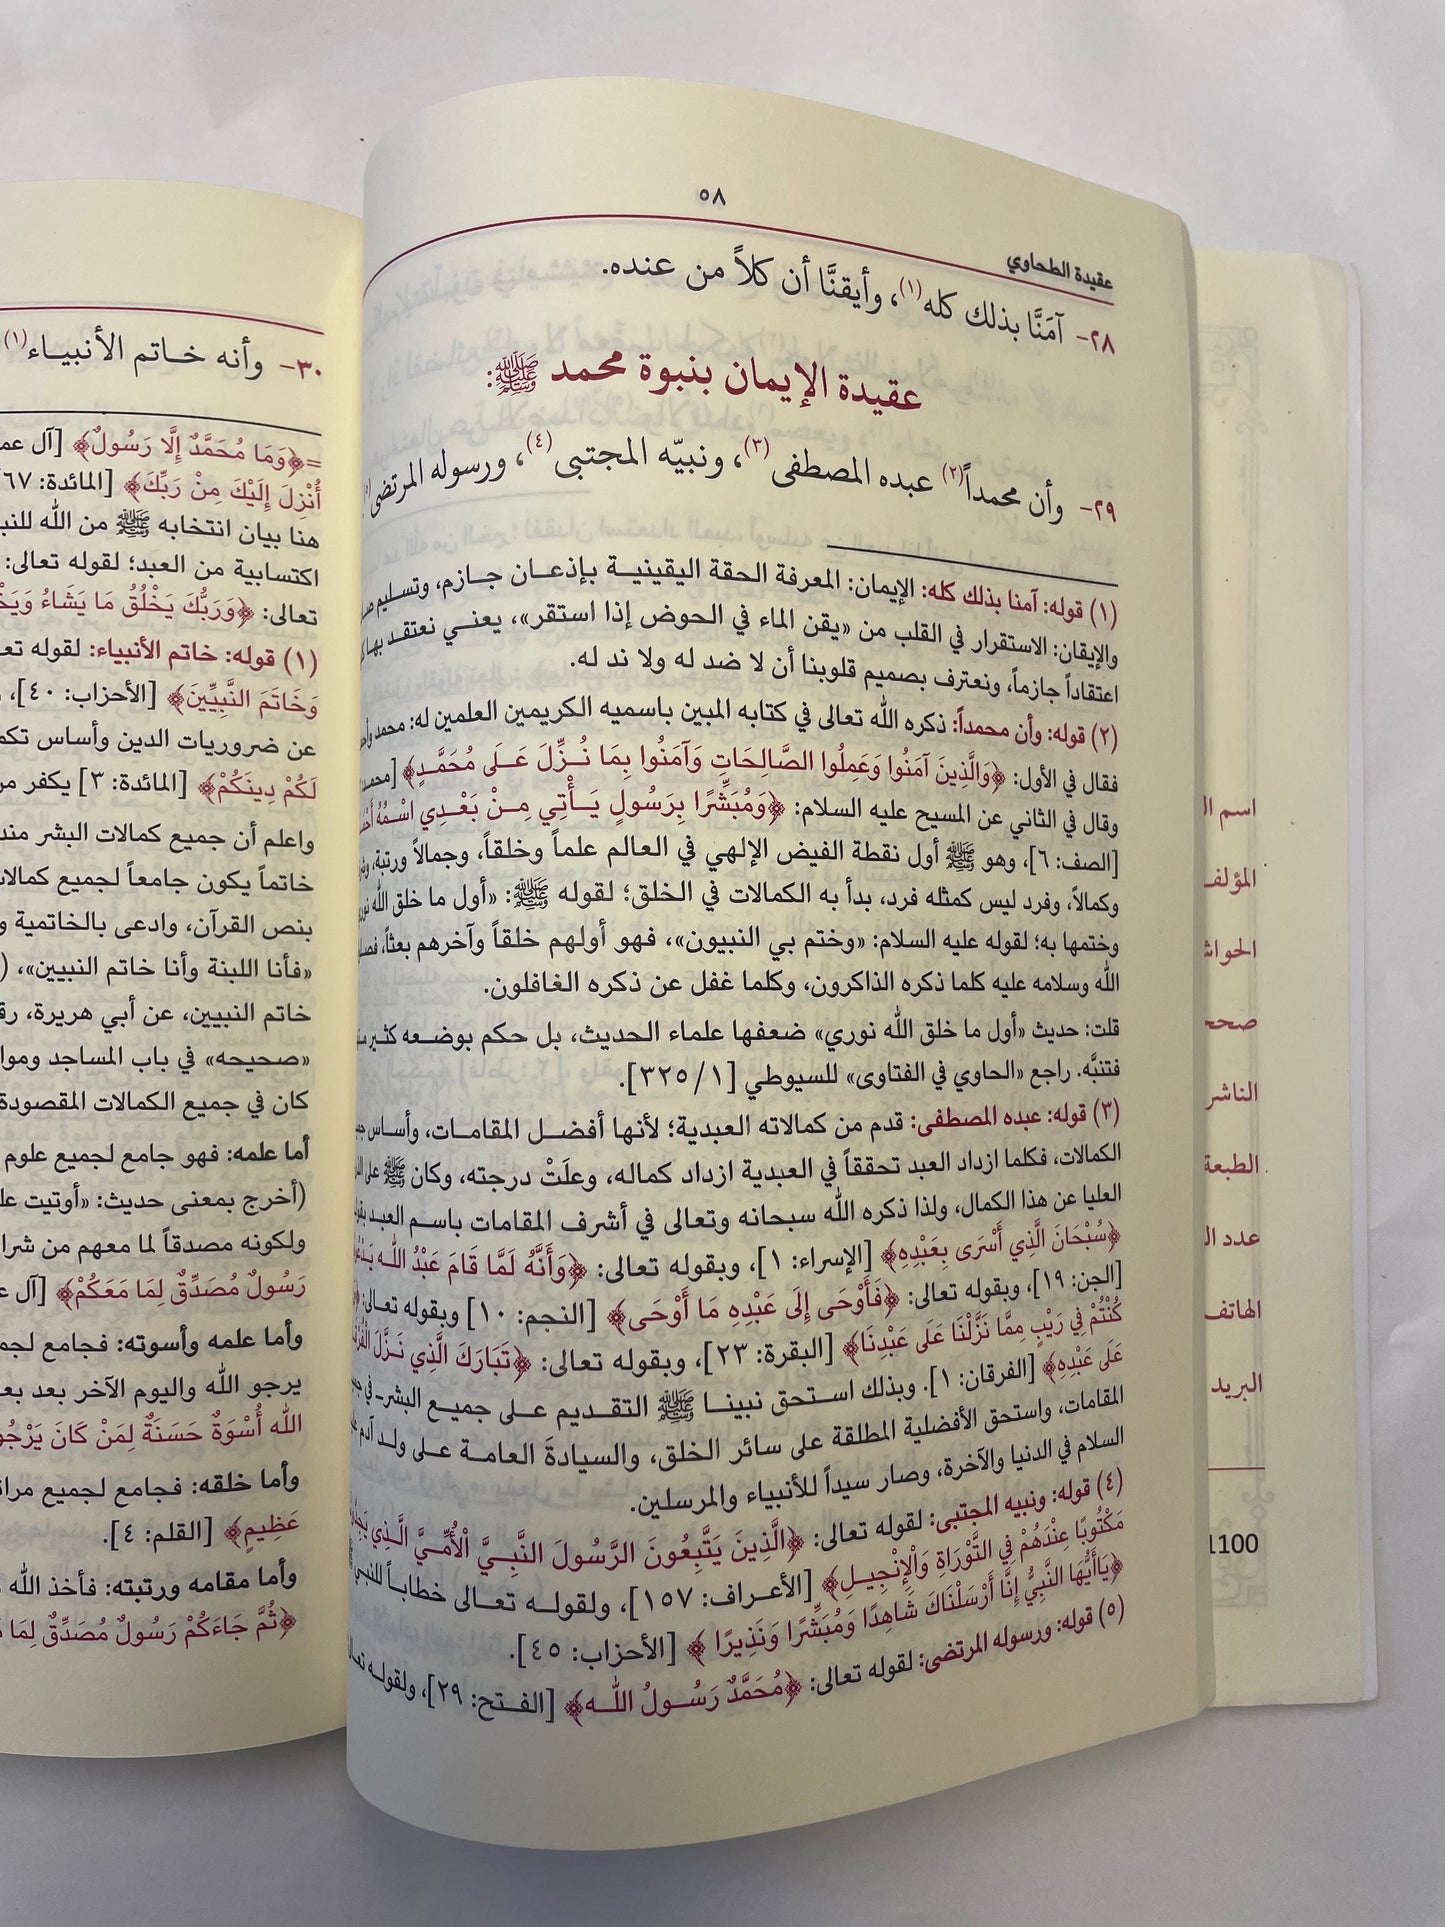 ٥٨
عقيدة الطحاوي
٢٨- آمَنَّا بذلك كله(١)، وأيقنَّا أن كلاً من عنده.
عقيدة الإيمان بنبوة محمد ﷺ:
٢٩- وأن محمداً(٢) عبده المصطفى(٣)، ونبيّه المجتبى(٤)، ورسوله المرتضى
(١) قوله: آمنا بذلك كله: الإيمان: المعرفة الحقة اليقينية بإذعان جازم، وتسليم
والإيقان: الاستقرار في القلب من «يقن الماء في الحوض إذا استقر»، يعني نعتقد
اعتقاداً جازماً، ونعترف بصميم قلوبنا أن لا ضد له ولا ند له.
(٢) قوله: وأن محمداً: ذكره الله تعالى في كتابه المبين باسميه الكريمين العلمين له: محمد
فقال في الأول: ﴿وَالَّذِينَ آمَنُوا وَعَمِلُوا الصَّالِحَاتِ وَآمَنُوا بِمَا نُزِّلَ عَلَى مُحَمَّدٍ﴾ [محمد:
وقال في الثاني عن المسيح عليه السلام: ﴿وَمُبَشِّرًا بِرَسُولٍ يَأْتِي مِنْ بَعْدِي اسْمُهُ
[الصف: ٦]، وهو ﷺ أول نقطة الفيض الإلهي في العالم علماً وخلقاً، وجمالاً ورتبة،
وكمالاً، وفرد ليس كمثله فرد، بدأ به الكمالات في الخلق؛ لقوله ﷺ: «أول ما خلق الله
وختمها به؛ لقوله عليه السلام: «وختم بي النبيون»، فهو أولهم خلقاً وآخرهم بعثاً،
الله وسلامه عليه كلما ذكره الذاكرون، وكلما غفل عن ذكره الغافلون.
قلت: حديث «أول ما خلق الله نوري» ضعفها علماء الحديث، بل حكم بوضعه كثير
فتنبَّه. راجع «الحاوي في الفتاوى» للسيوطي [١/ ٣٢٥].
(٣) قوله: عبده المصطفى: قدم من كمالاته العبدية؛ لأنها أفضل المقامات، وأساس
الكمالات، فكلما ازداد العبد تحققاً في العبدية ازداد كماله، وعلَتْ درجته، وكان ﷺ على
العليا عن هذا الكمال، ولذا ذكره الله سبحانه وتعالى في أشرف المقامات باسم العبد
﴿سُبْحَانَ الَّذِي أَسْرَى بِعَبْدِهِ﴾ [الإسراء: ١]، وبقوله تعالى: ﴿وَأَنَّهُ لَمَّا قَامَ عَبْدُ اللَّه
[الجن: ١٩]، وبقوله تعالى: ﴿فَأَوْحَى إِلَى عَبْدِهِ مَا أَوْحَى﴾ [النجم: ١٠] وبقوله تعالى:
كُنْتُمْ فِي رَيْبٍ مِمَّا نَزَّلْنَا عَلَى عَبْدِنَا﴾ [البقرة: ٢٣]، وبقوله تعالى: ﴿تَبَارَكَ الَّذِي نَزَّلَ
عَلَى عَبْدِهِ﴾ [الفرقان: ١]. وبذلك استحق نبينا ﷺ التقديم على جميع البشر- في
المقامات، واستحق الأفضلية المطلقة على سائر الخلق، والسيادةَ العامة على ولد آدم
السلام في الدنيا والآخرة، وصار سيداً للأنبياء والمرسلين.
(٤) قوله: ونبيه المجتبى: لقوله تعالى: ﴿الَّذِينَ يَتَّبِعُونَ الرَّسُولَ النَّبِيَّ الْأُمِّيَّ الَّذِي
مَكْتُوبًا عِنْدَهُمْ فِي التَّوْرَاةِ وَالْإِنْجِيلِ﴾ [الأعراف: ١٥٧]، ولقوله تعالى خطاباً للنبي
﴿يَاأَيُّهَا النَّبِيُّ إِنَّا أَرْسَلْنَاكَ شَاهِدًا وَمُبَشِّرًا وَنَذِيرًا﴾ [الأحزاب: ٤٥].
(٥) قوله: ورسوله المرتضى: لقوله تعالى: ﴿مُحَمَّدٌ رَسُولُ اللَّه﴾ [الفتح: ٢٩]، ولقوله
٣٠- وأنه خاتم الأنبياء(١)
=﴿وَمَا مُحَمَّدٌ إِلَّا رَسُولٌ﴾ [آل
أُنْزِلَ إِلَيْكَ مِنْ رَبِّكَ﴾ [المائدة: ٦٧
هنا بيان انتخابه ﷺ من الله
اكتسابية من العبد؛ لقوله تعالى:
تعالى: ﴿وَرَبُّكَ يَخْلُقُ مَا يَشَاءُ
(١) قوله: خاتم الأنبياء: لقوله
وَخَاتَمَ النَّبِيِّينَ﴾ [الأحزاب: ٤٠]،
عن ضروريات الدين وأساس
لَكُمْ دِينَكُمْ﴾ [المائدة: ٣] يكفر
واعلم أن جميع كمالات البشر
خاتماً يكون جامعاً لجميع
بنص القرآن، وادعى بالخاتمية
«فأنا اللبنة وأنا خاتم النبيين»،
خاتم النبيين، عن أبي هريرة،
«صحيحه» في باب المساجد
كان في جميع الكمالات المقصودة
أما علمه: فهو جامع لجميع علوم
(أخرج بمعنى حديث: «أوتيت
ولكونه مصدقاً لما معهم من
رَسُولٌ مُصَدِّقٌ لِمَا مَعَكُمْ﴾ [آل
وأما علمه وأسوته: فجامع
يرجو الله واليوم الآخر بعد
اللَّه أُسْوَةٌ حَسَنَةٌ لِمَنْ كَانَ
وأما خلقه: فجامع لجميع
عَظِيمٍ﴾ [القلم: ٤].
وأما مقامه ورتبته: فأخذ الله
﴿ثُمَّ جَاءَكُمْ رَسُولٌ مُصَدِّقٌ لِمَا
اسم
المؤلف
الناشر
الطبعة
عدد
الهاتف
البريد
1100